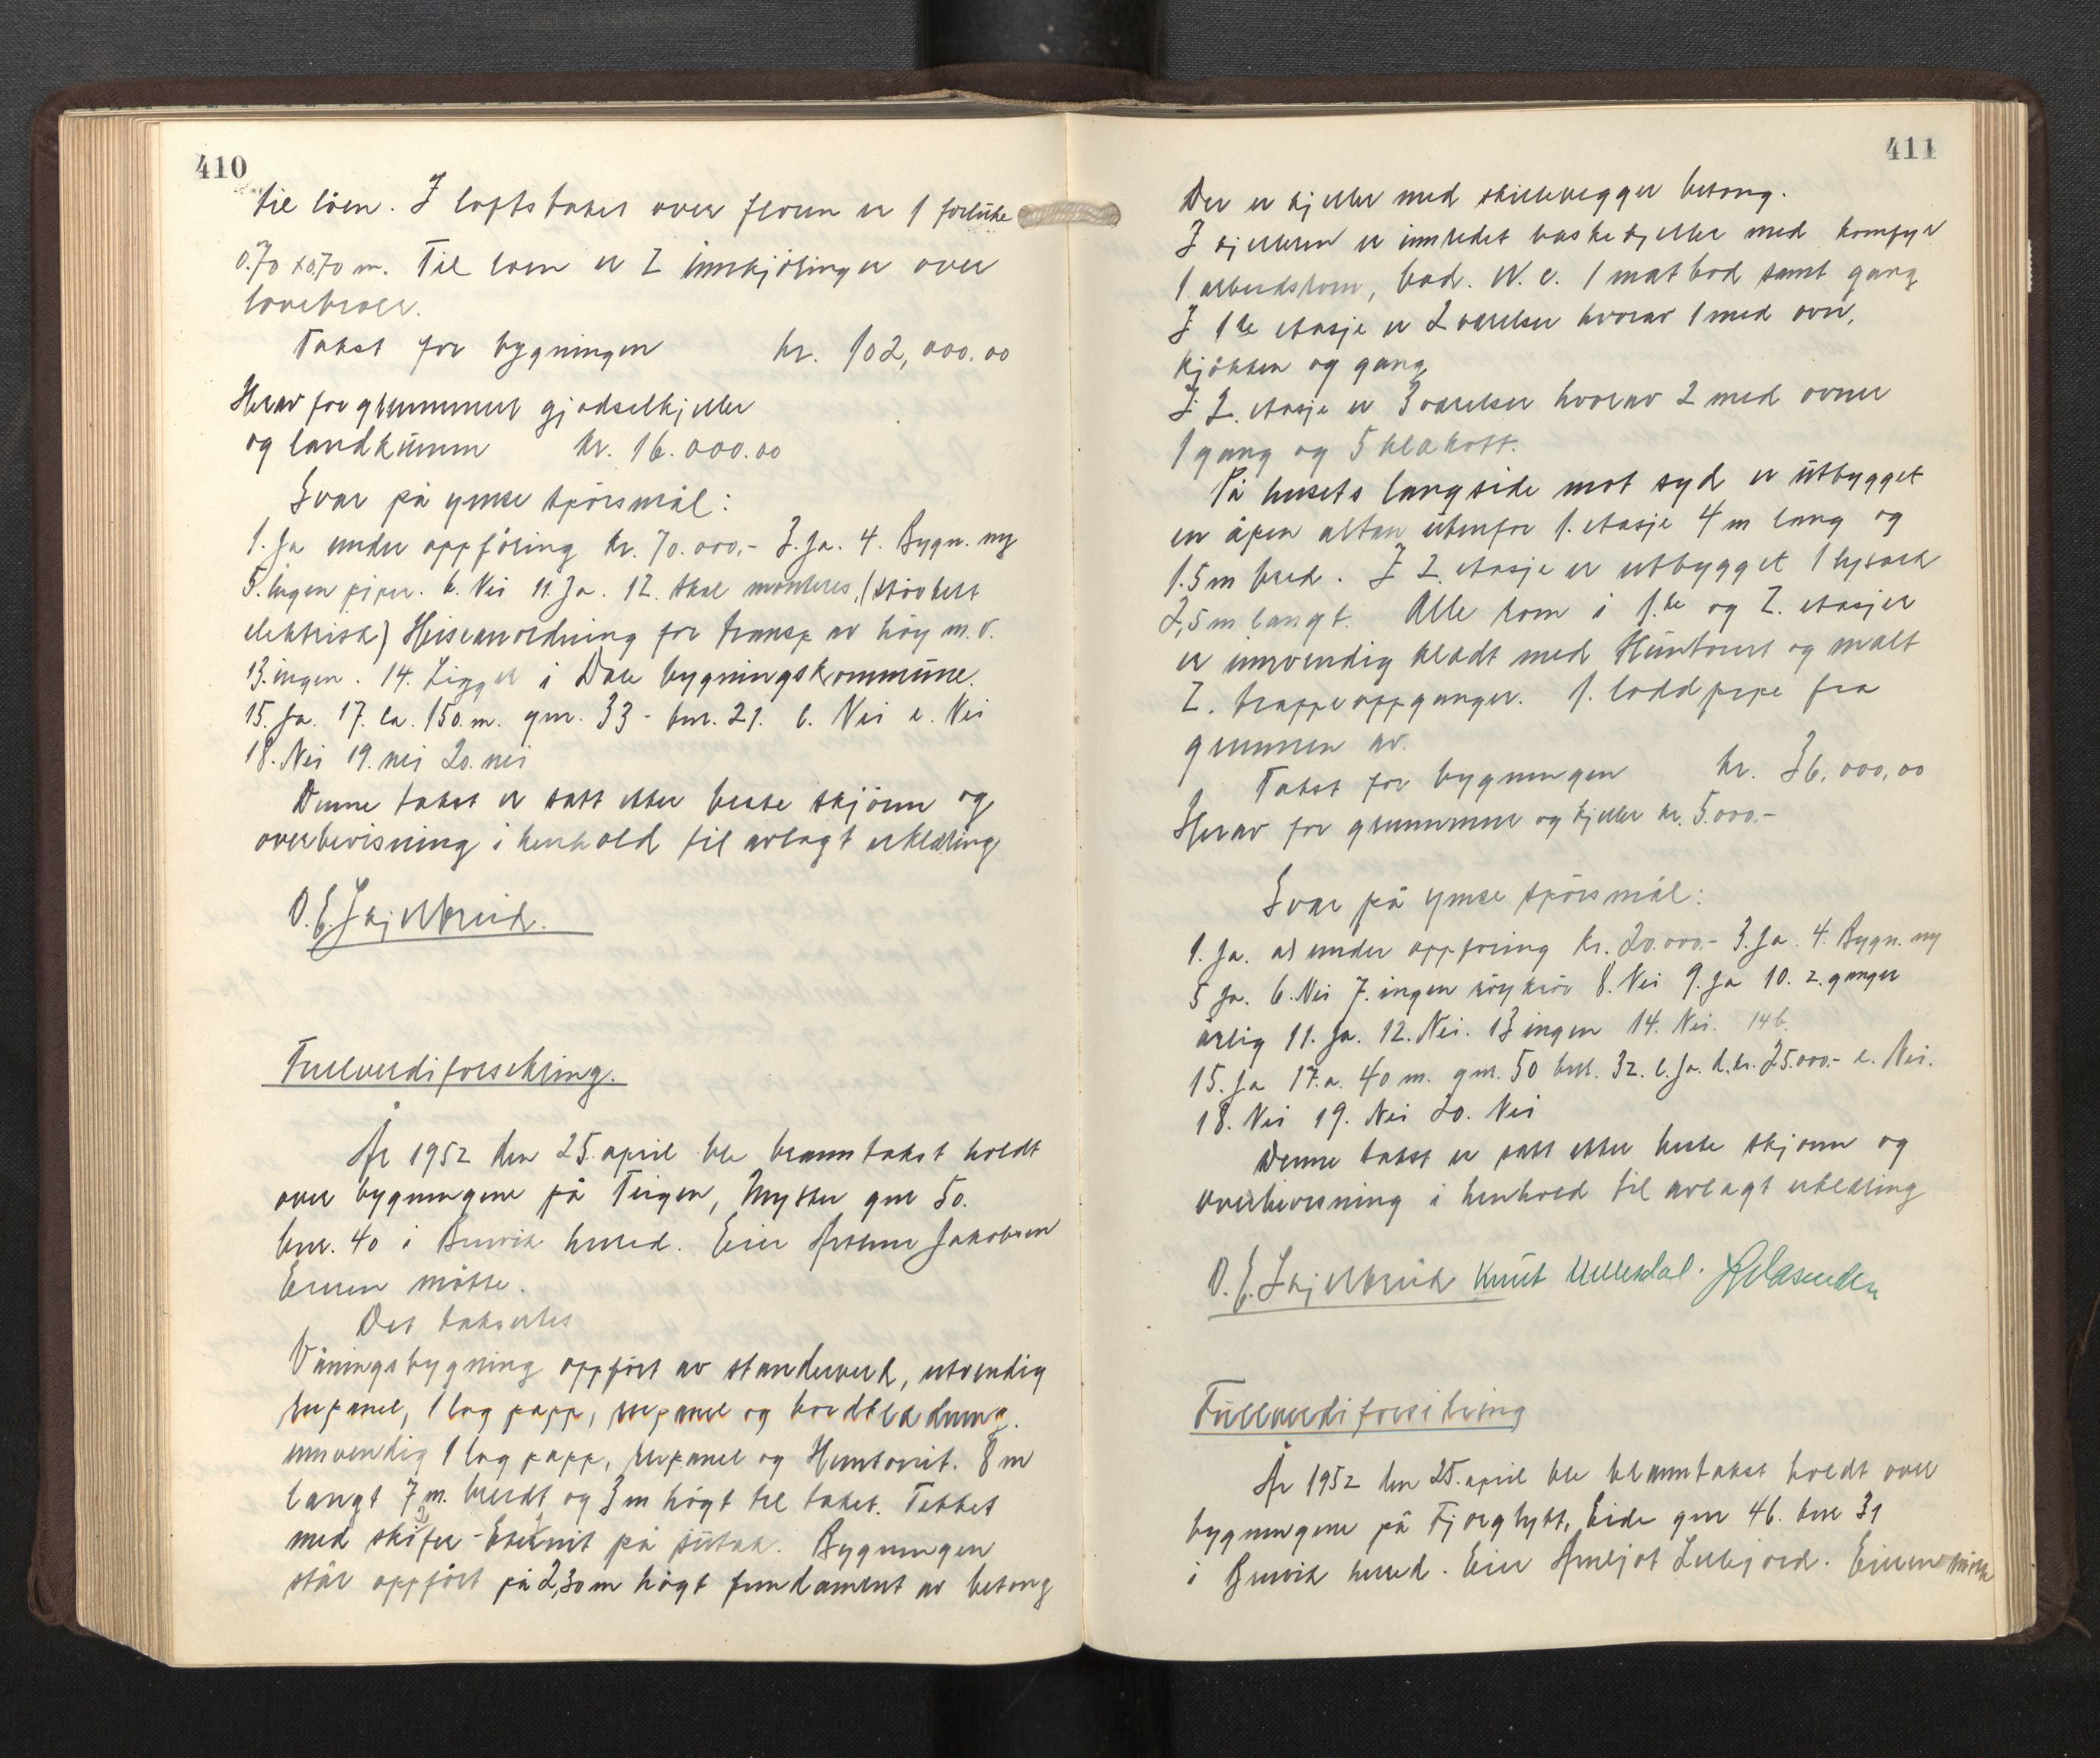 410
til löen. I loftstaket over floren er 1 forluke
0.70 x 0.70 m. Til loen er 2 innkjöringer over
lovebroer.
Takst for bygningen kr. 102,000.00
Herav for grunnmur gjödselkjeller
og landkum kr. 16.000.00
Svar på ymse spörsmål:
1. Ja under oppföring kr. 70.000,- 3. Ja. 4. Bygn. ny
5. ingen piper. 6. Nei 11. Ja. 12. skal monteres, (
elektrisk) Heiseanordning for transp av höy m.v.
13. ingen. 14. Ligger i Dale bygningskommune.
15. Ja. 17. ca. 150. m. gnr. 33 - bnr. 21. c. Nei e. Nei
18. Nei 19. nei 20. nei
Denne takst er satt etter beste skjönn og
overbevisning i henhold til avlagt erklæring
O. E. Skjelbreid.
Fullverdiforsikring.
År 1952 den 25. april ble branntakst holdt
over bygningene på Teigen, Myster gnr 50.
bnr. 40 i Bruvik herred. Eier Jakobsen
Eieren mötte.
Det takseres
Våningsbygning oppfört av standerverk, utvendig
rupanel, 1 lag papp, rupanel og bordkledning.
innvendig 1 lag papp, rupanel og Huntonit. 8 m
langt 7 m. bredt og 3 m högt til taket. Tekket
med skifer - Eternit på sutak. Bygningen
står oppfört på 2,30 m högt fundament av betong
411
Der er kjeller med skillevegger betong.
I kjelleren er innredet vaskekjeller med komfyr
1 arbeidsrom, bad. W. c. 1 matbod samt gang
I 1ste etasje er 2 værelser hvorav 1 med ovn,
kjökken og gang
I 2. etasje er 3 værelser hvorav 2 med ovner
1 gang og 5 klekott.
På husets langside mot syd er utbygget
en åpen altan utenfor 1. etasje 4 m lang og
1.5 m bred. I 2. etasje er utbygget 1
2,5 m langt. Alle rom i 1.ste og 2. etasjer
er innvendig kledt med Huntonit og malt
2. trappeoppganger. 1. lodd pipe fra
grunnen av.
Takst for bygningen kr. 36.000,00
Herav for grunnmur og kjeller kr. 5.000.-
Svar på ymse spörsmål:
1. Ja. a) under oppföring kr. 20.000.- 3. Ja. 4. Bygn. ny
5 Ja. 6. Nei 7. ingen röykrör 8. Nei 9. Ja 10. 2. ganger
årlig 11. Ja. 12. Nei. 13 ingen 14. Nei. 14 b.
15. Ja 17. a. 40 m. gnr. 50 bnr. 32. c. Ja. d. kr. 25.000.- e. Nei.
18. Nei 19. Nei 20. Nei
Denne takst er satt etter beste skjönn og
overbevisning i henhold til avlagt erklæring
O. E. Skjelbreid Knut
Fullverdiforsikring
År 1952 den 25. april ble branntakst holdt over
bygningene på Eide gnr 46. bnr 31
i Bruvik herred. Eier Eieren mötte